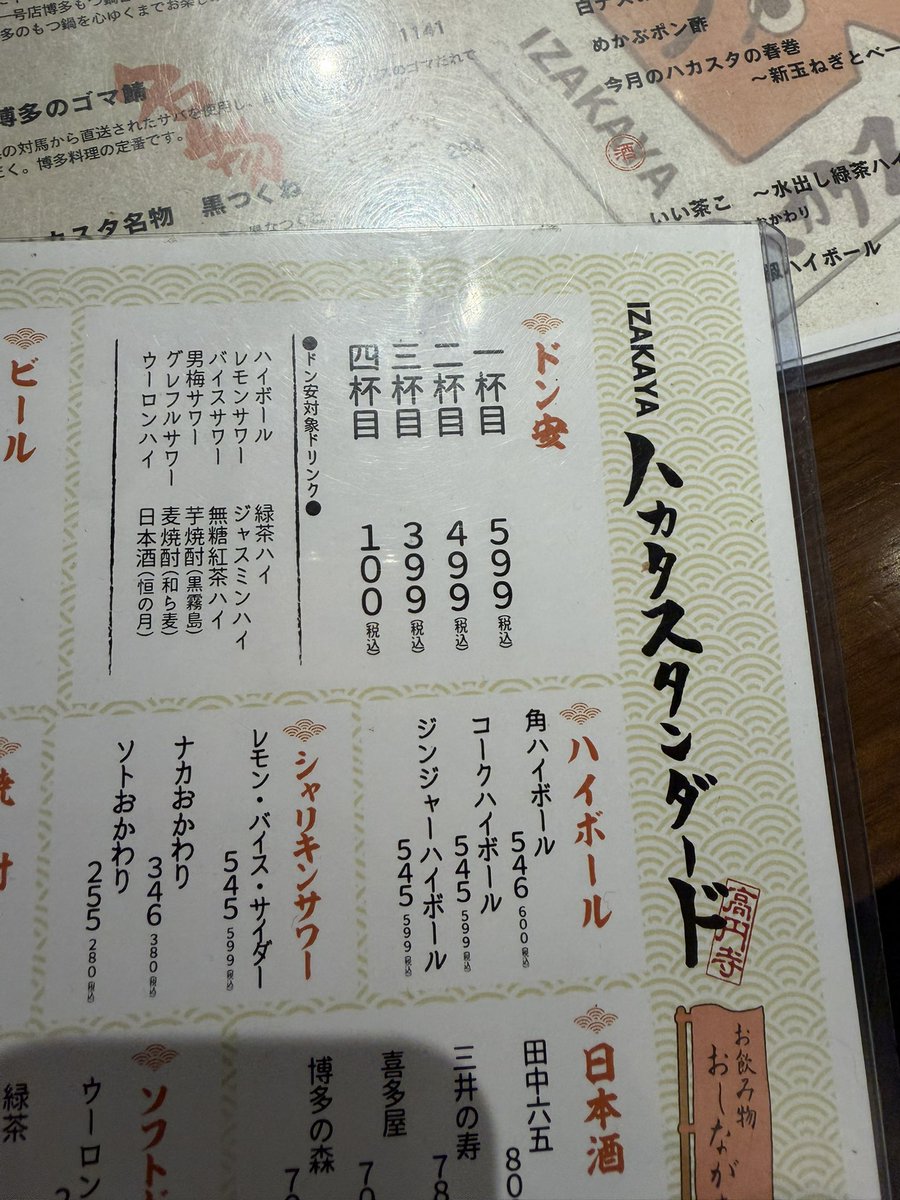 一号店博多もつ鍋
多のもつ鍋を心ゆくまでお楽し
1141
博多のゴマ鯖
の対馬から直送されたサバを使用し、
のゴマだれで
く。博多料理の定番です。
カスタ名物 黒つくね
めかぶポン酢
今月のハカスタの春巻
~新玉ねぎとベー
IZAKAYA
酒
いい茶こ ~水出し緑茶ハイ
おかわり
ハイボール
IZAKAYA ハカタスタンダード
高円寺
お飲み物
おしなが
ドン安
一杯目 599(税込)
二杯目 499(税込)
三杯目 399(税込)
四杯目 100(税込)
●ドン安対象ドリンク●
ハイボール 緑茶ハイ
レモンサワー ジャスミンハイ
バイスサワー 無糖紅茶ハイ
男梅サワー 芋焼酎(黒霧島)
グレフルサワー 麦焼酎(和ら麦)
ウーロンハイ 日本酒(恒の月)
ビール
ハイボール
角ハイボール 546 600(税込)
コークハイボール 545 599(税込)
ジンジャーハイボール 545 599(税込)
シャリキンサワー
レモン・バイス・サイダー 545 599(税込)
ナカおかわり 346 380(税込)
ソトおかわり 255 280(税込)
日本酒
田中六五 80
三井の寿 78
喜多屋 70
博多の森 70
ソフトド
ウーロン
緑茶